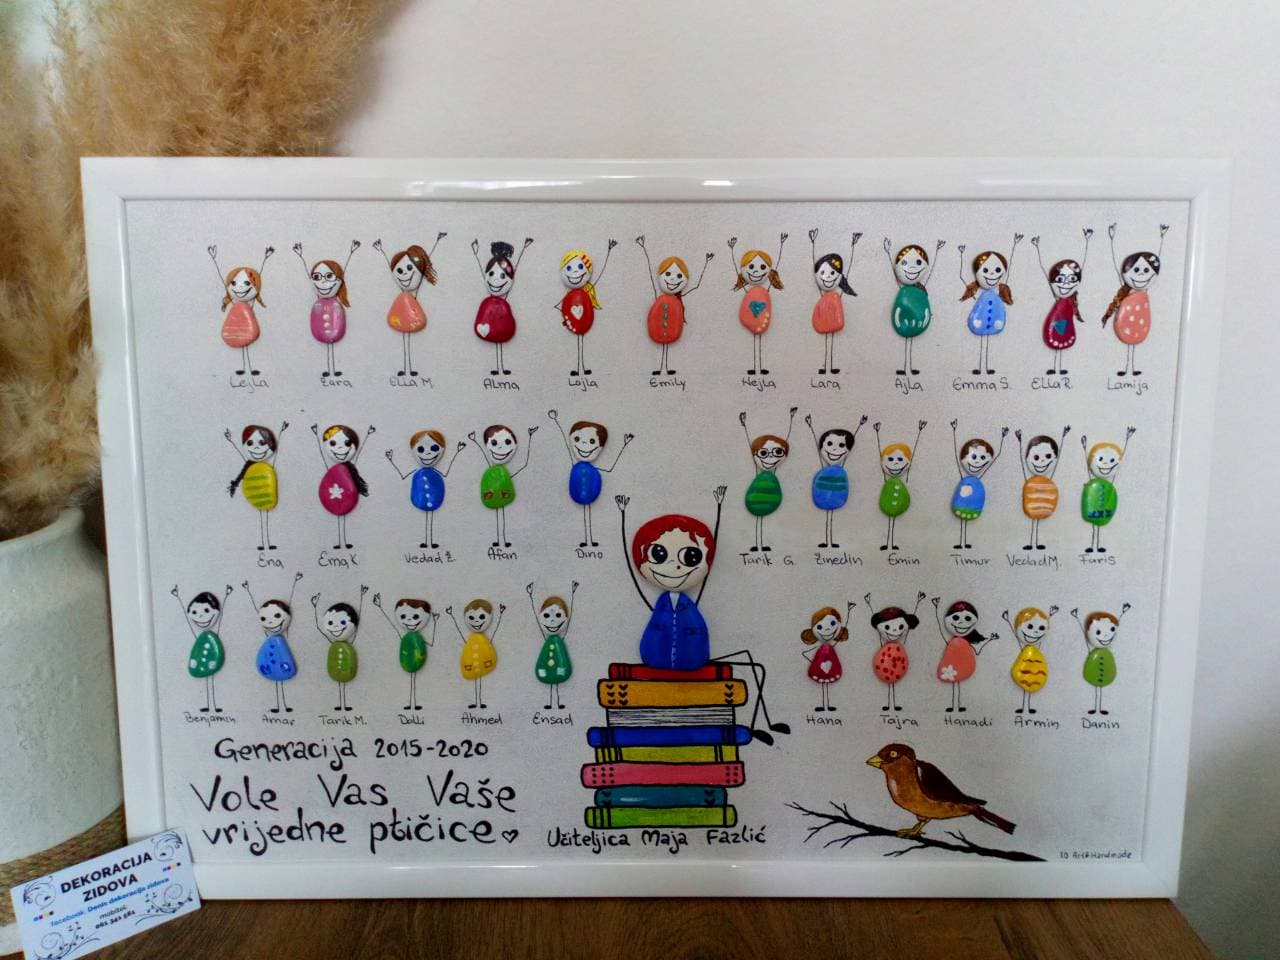 Lejla Zara Ella M. Alma Lajla Emily Nejla Lara Ajla Emma S. Ella R. Lamija
Ena Ema K Vedad Ž. Afan Dino Tarik G. Zinedin Emin Timur Vedad M. Faris
Benjamin Amar Tarik M. Dalli Ahmed Ensad Hana Tajra Hanadi Armin Danin
Generacija 2015-2020
Vole Vas Vaše
vrijedne ptičice
Učiteljica Maja Fazlić
Art&Handmade
DEKORACIJA
ZIDOVA
facebook: Denis dekoracija zidova
mobitel:
061 341 561